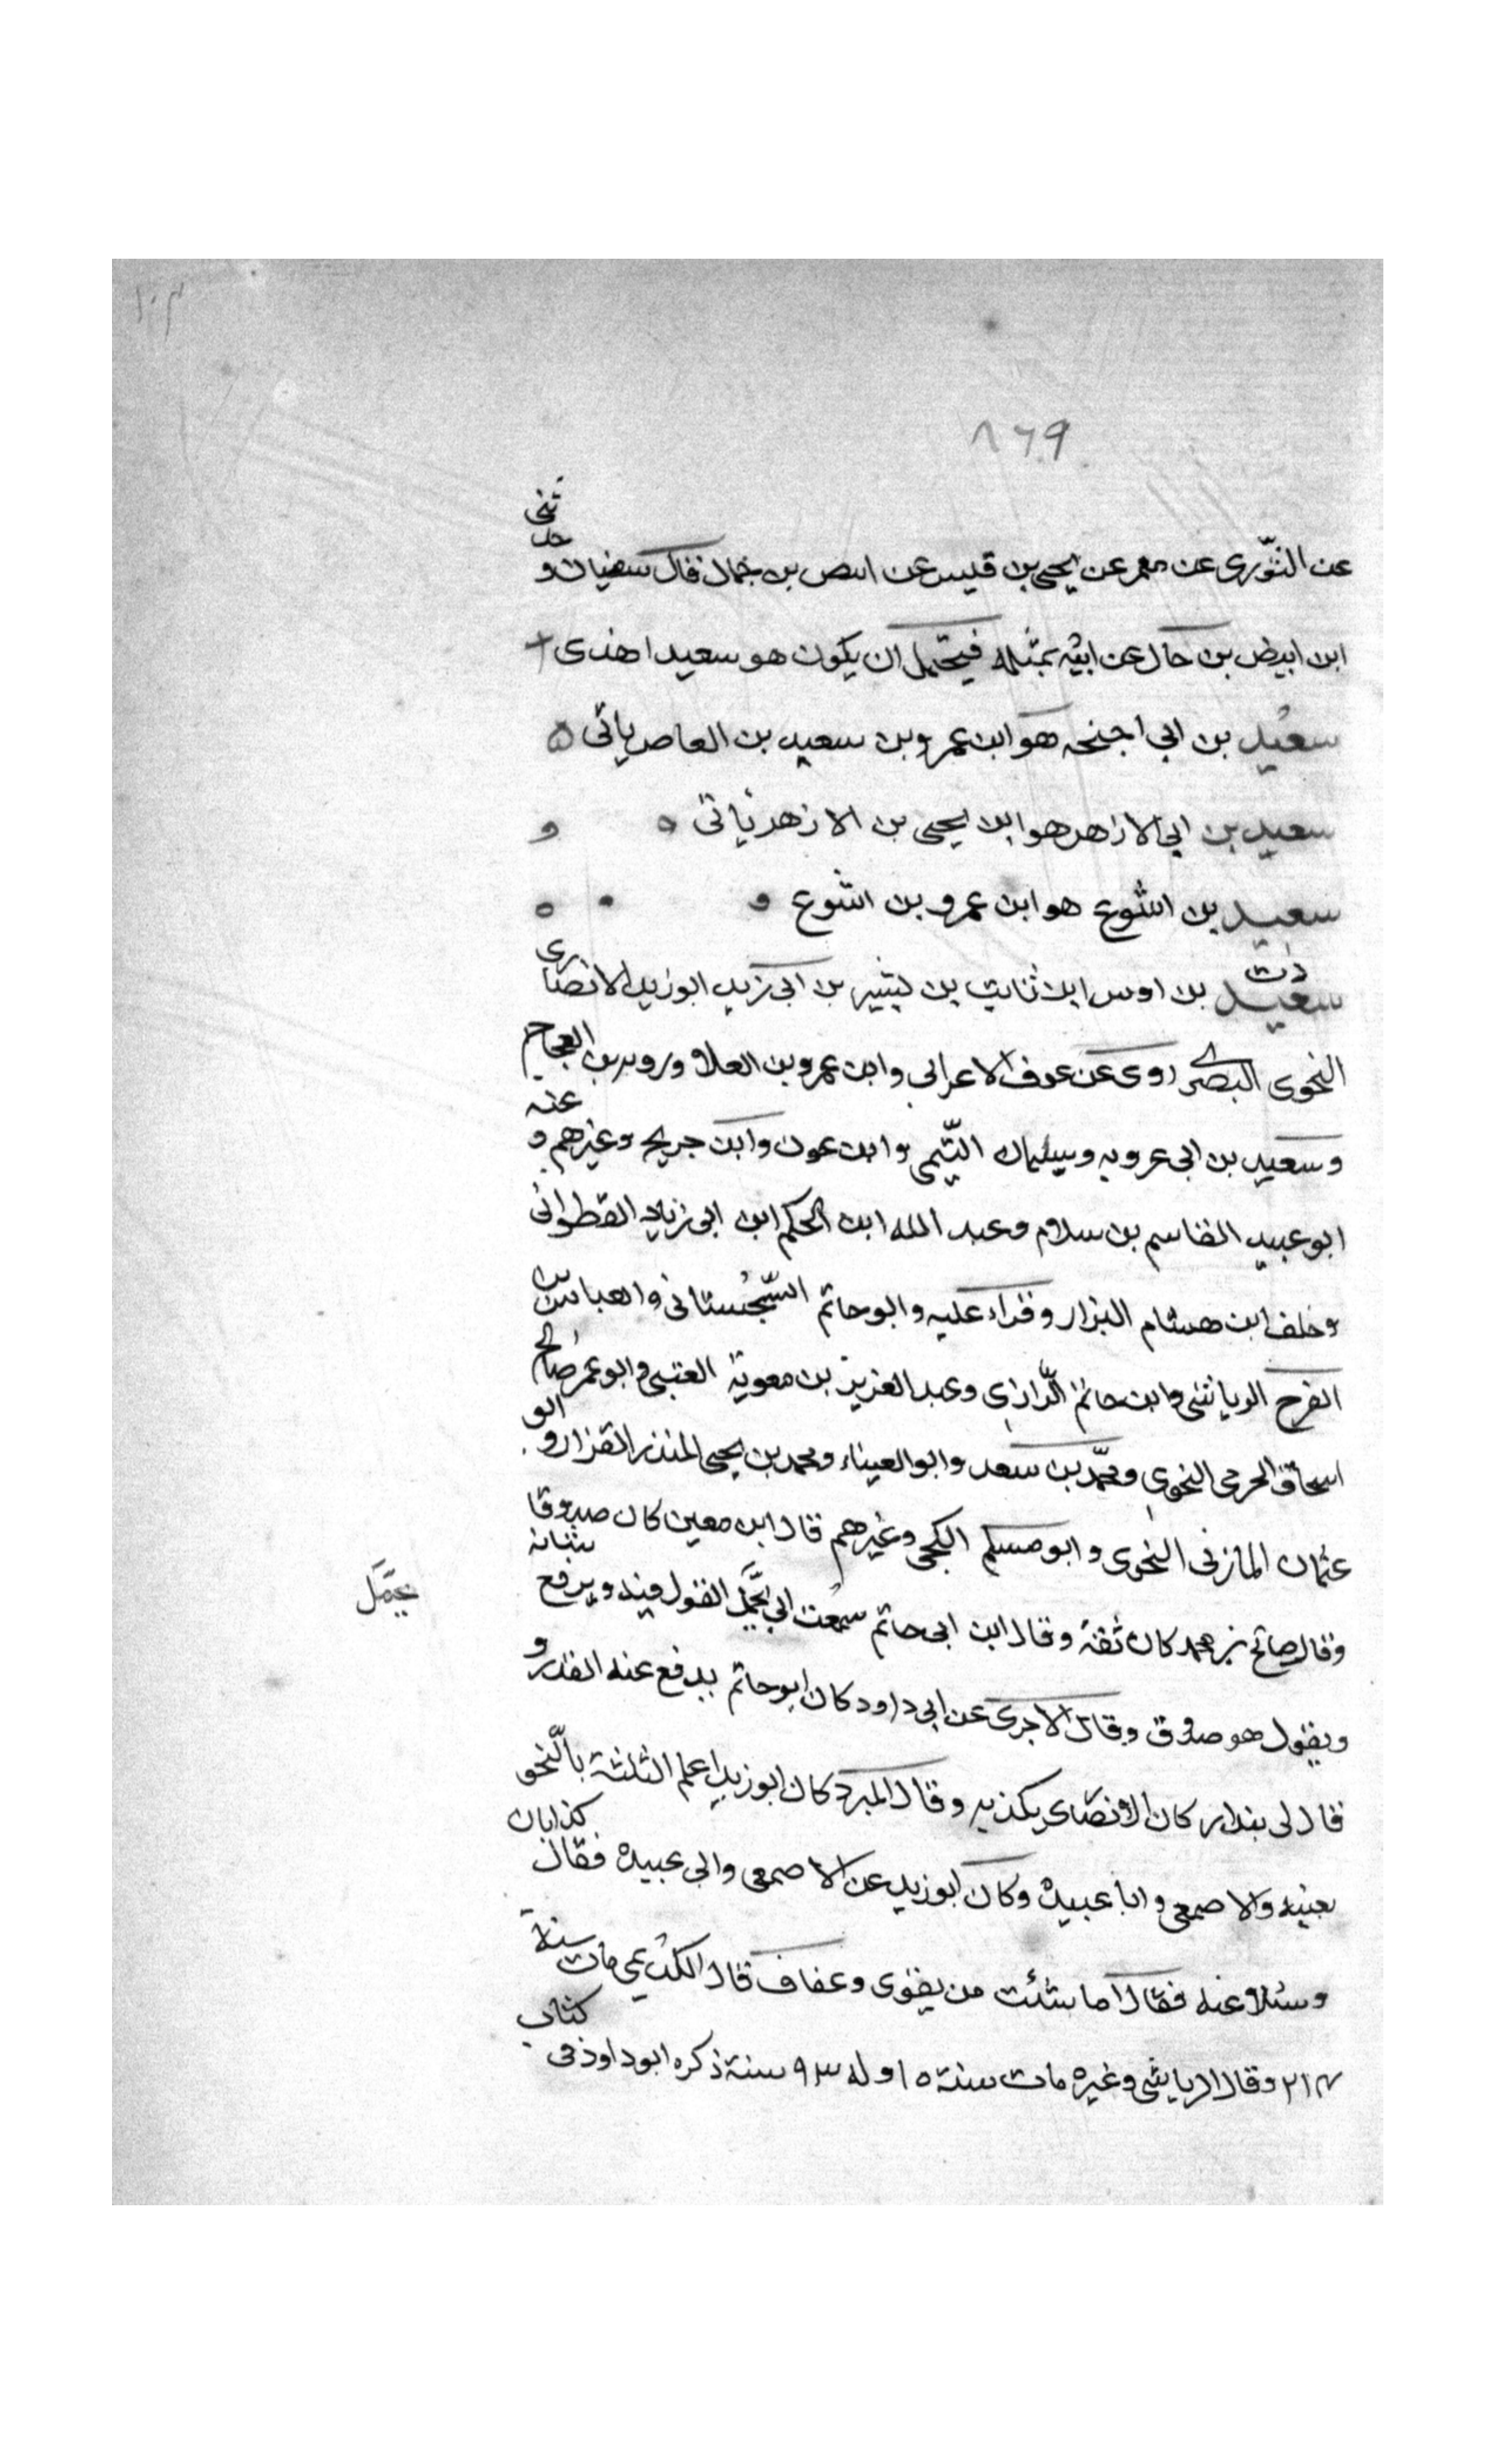 ١٠٣
٨٦٩
عن الثوری عن معمر عن یحیی بن قیس عن ابیض بن حمال فقال سفیان وحدثنی
ابن ابیض بن حمال عن ابیه بمثله فیحتمل ان یکون هو سعید اهذی
سعید بن ابی اجنحه هو ابن عمرو بن سعید بن العاص یاتی ه
سعید بن ابی الازهر هو ابن یحیی بن الازهر یاتی ه
سعید بن اشوع هو ابن عمرو بن اشوع
دت سعید بن اوس ابن ثابت بن بشیر بن ابی زید ابو زید الانصاری
النحوی البصری روی عن عوف الاعرابی وابن عمرو بن العلاو وروبه بن العجاج
وسعید بن ابی عروبه وسلیمان التیمی وابن عون وابن جریج وغیرهم وعنه
ابو عبید القاسم بن سلام وعبد الله ابن الحکم ابن ابی زیاد القطوانی
وخلف ابن هشام البزار وقراء علیه وابو حاتم السجستانی والعباس بن
الفرج الریاشی وابن حاتم الرازی وعبد العزیز بن معویة العتبی وابو عمر صالح
اسحاق الجرمی النحوی ومحمد بن سعد وابو العیناء ومحمد بن یحیی المنذر القزار وابو
عثمان المازنی النحوی وابو مسلم الکجی وغیرهم قال ابن معین کان صدوقا
وقال صالح بن محمد کان ثقة وقال ابن ابی حاتم سمعت ابی یجمل القول فیه ویرفع شانه
یجمل
ویقول هو صدوق وقال الاجری عن ابی داود کان ابو حاتم یدفع عنه القدر و
قال لی بندار کان الانصاری یکذبه وقال المبرد کان ابو زید اعلم الثلثة بالنحو
یعنیه والاصمعی وابا عبیدة وکان ابو زید عن الاصمعی وابی عبیدة فقال کذابان
وسئلا عنه فقالا ما شئت من یقوی وعفاف قال الکدیمی مات سنة
٢١٤ وقال الریاشی وغیره مات سنة ١٥ وله ٩٣ سنة ذکره ابو داود فی کتاب